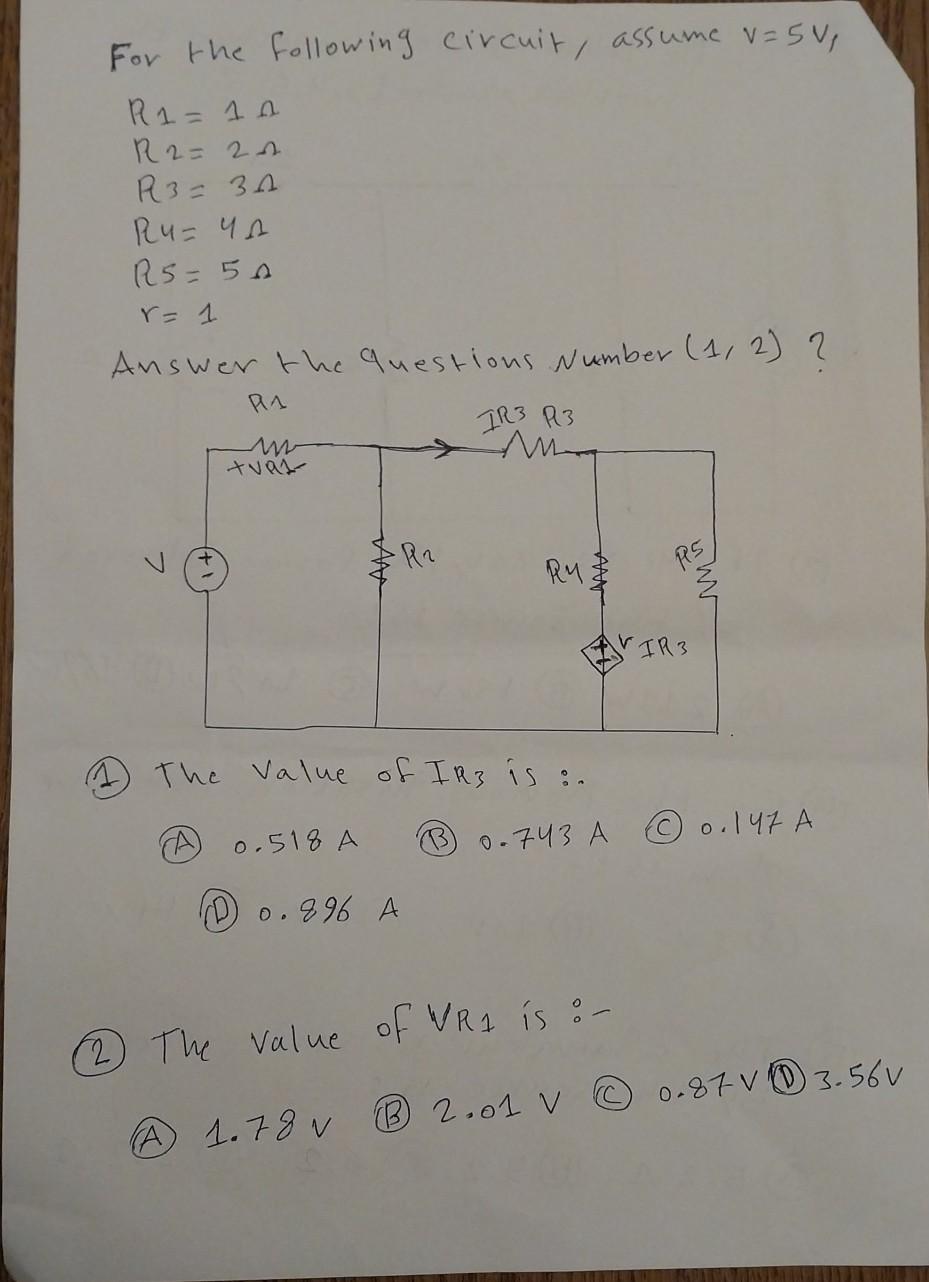 For the following circuit, assume V=5V,
R1= 1 Ω
R2= 2Ω
R3= 3Ω
R4= 4Ω
R5= 5 Ω
r= 1
Answer the questions Number (1, 2) ?
R1
IR3 R3
+VR1-
V
+
-
R2
R4
R5
+
-
r IR3
① The Value of IR3 is :.
Ⓐ 0.518 A Ⓑ 0.743 A Ⓒ 0.147 A
Ⓓ 0.896 A
② The Value of VR1 is :-
Ⓐ 1.78 v Ⓑ 2.01 V Ⓒ 0.87 V Ⓓ 3.56v